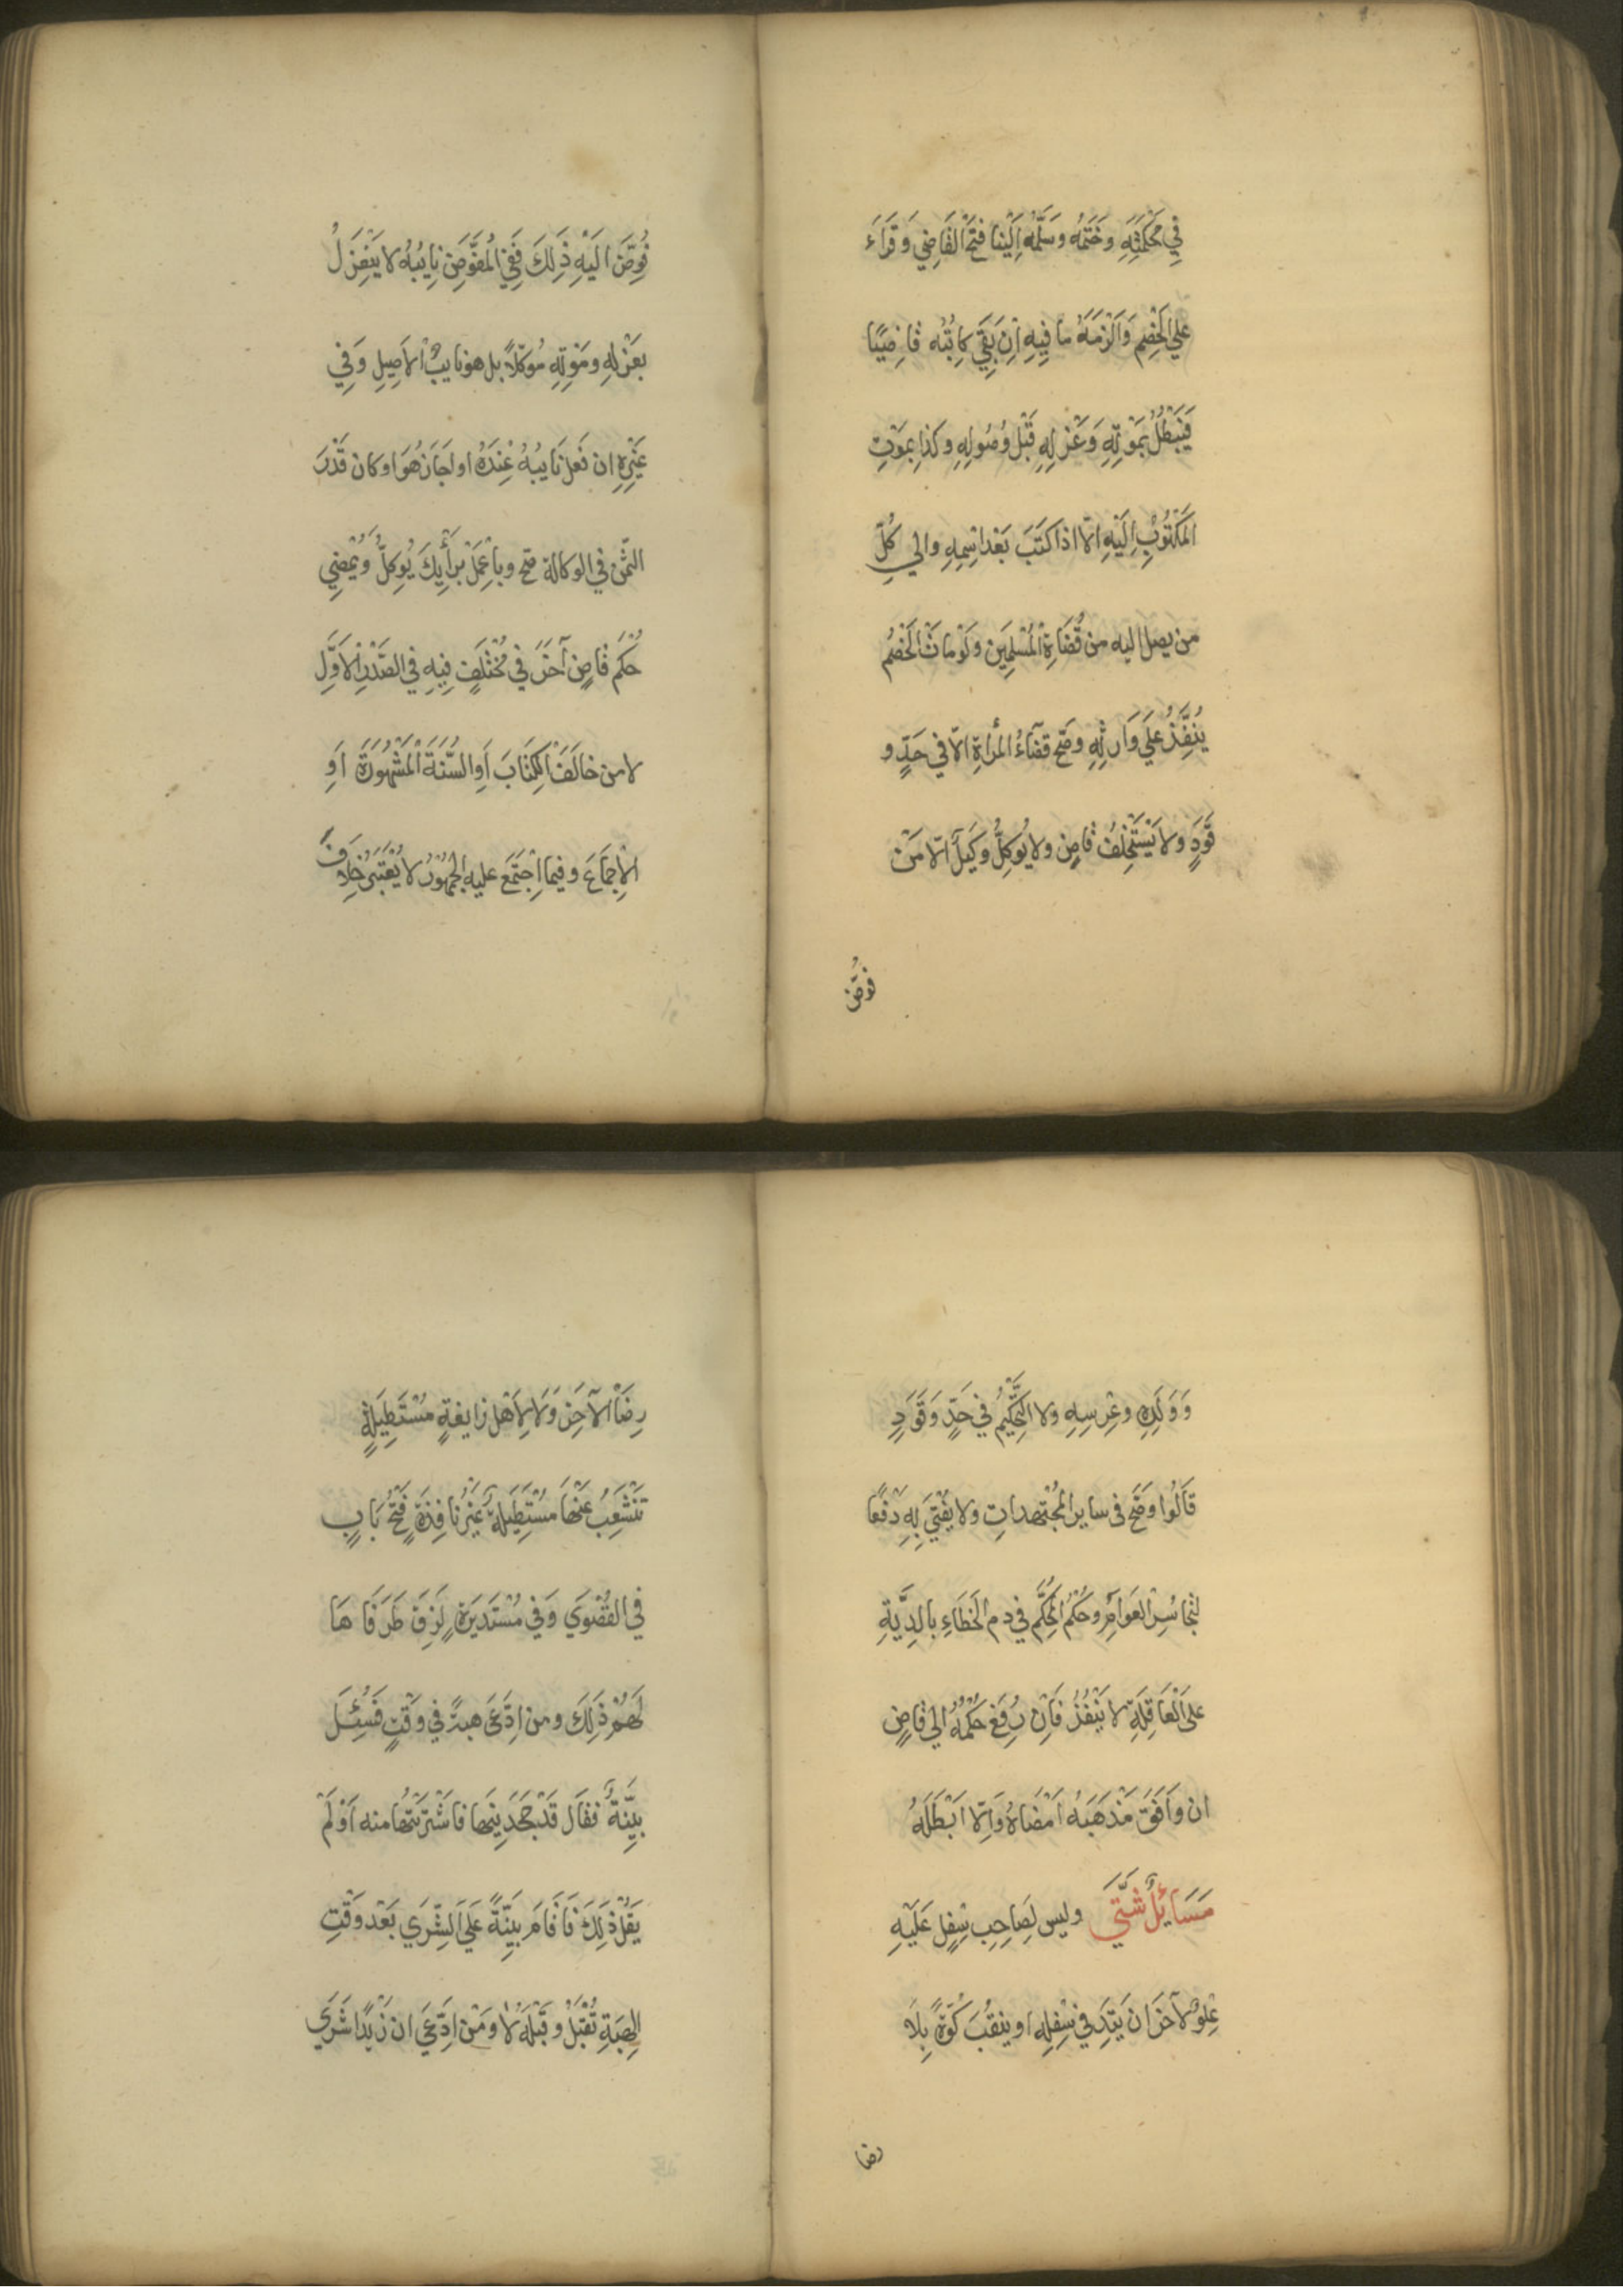 فِي مَحْكَمَتِهِ وخَتَمُه وسَلَّمُه اِلَيْنا فتحَ القَاضِي وَقَرَاءَ
علي الخَصِم وَاَلْزَمَهُ ما فِيهِ اِن بَقِيَ كاتِبُه قاضِيًا
فَيَبْطُلُ بمَوْتِهِ وَعَزْلِهِ قَبْل وُصُولِهِ وكَذا بمَوْتِ
المَكْتُوْبِ اِلَيْهِ الّا اذا كَتَبَ بَعْد اسْمِهِ والي كُلِّ
من يصل اليه من قُضَاةِ الْمُسْلِمِين وَلَوْ مَاتَ الْخَصْمُ
يُنَفِّذُ عَلَي وَارِثِهِ وصَح قضَاءُ المرأةِ الّا في حَدٍّ و
قَوَدٍ ولا يَسْتَخْلِفُ قاضٍ ولا يُوكِلُّ وَكِيلٌ الّا مَنْ
فُوّضَ
فُوِّضَ الَيْهِ ذَلِكَ فَفِي المُفَوَّضِ نايِبُهُ لا يَنْعَزِلُ
بعَزْلِهِ ومَوْتِهِ مُوكّلاً بل هو نايبُ الْاَصِيلِ وَفِي
غَيْرِهِ ان فَعل نَايبُهُ عِنْدَهُ او اجَازَ هُوَ او كان قَدَّرَ
الثّمن في الوكالة صَح وباِعْمَلْ برَأْيِكَ يُوكِلُّ وَيُمْضِي
حُكْمَ قاضٍ آخَرَ في مُخْتَلَفٍ فِيهِ في الصَّدْرِ الْاَوَّلِ
لا من خالَفَ الكِتَابَ اَوِ السُّنَةَ المَشْهُورَةَ اَوِ
الْاِجْمَاعَ وفيما اِجْتَمَعَ عليه الجُمْهُوْرُ لا يُعْتَبَرُ خِلَافُ
وَوَلَدِهِ وعِرْسِهِ ولا التَّحْكِيْمُ في حَدٍّ وَقَوَدٍ
قَالُوا وَصَحَ فى ساير المُجْتَهداتِ ولا يُفْتَي بِهِ دَفْعًا
لتجاسُرِ العَوامِّ وحُكْمُ المُحَكَّم في دم الخَطَاءِ بالدِّيَّةِ
علي العَاقِلَةِ لا يَنْفُذُ فَاِن رُفِعَ حُكْمُهُ الي قاضٍ
ان وَافَقَ مَذْهَبَهُ اَمْضَاهُ وَاِلّا اَبْطَلَهُ
مَسَايلُ شَتّي وليس لصَاحِبِ سِفِلٍ عَلَيْهِ
عُلوٌ لآخَرَ ان يَتِدَ في سِفلِهِ او ينقُبَ كُوَّةً بِلَا
رضا
رِضَا الْآخَرِ وَلَا لِاَهْل زايغةٍ مُسْتَطِيلةٍ
تَنْشَعِبُ عَنْهَا مُسْتَطِيلَةٌ غَيْرُ نافِذَةٍ فَتْحُ بَابٍ
في القُصْوَي وَفي مُسْتَدِيرَةٍ لَزِقَ طَرَفَاهَا
لَهُمْ ذَلِكَ ومن اِدَّعَيَ هبةً في وَقْتٍ فَسُئِلَ
بيِّنةً فقَال قَدْ جَحَدَنِيها فاشْتَرَيْتُها منه اَوْ لَمْ
يَقُلْ ذَلِكَ فَاَقَامَ بيِّنةً عَلَي الشِّرَي بَعْد وَقْتِ
الهِبَةِ تُقْبَلُ وقَبْلَهُ لا وَمَن ادّعَيَ ان زَيْدًا شَرَي